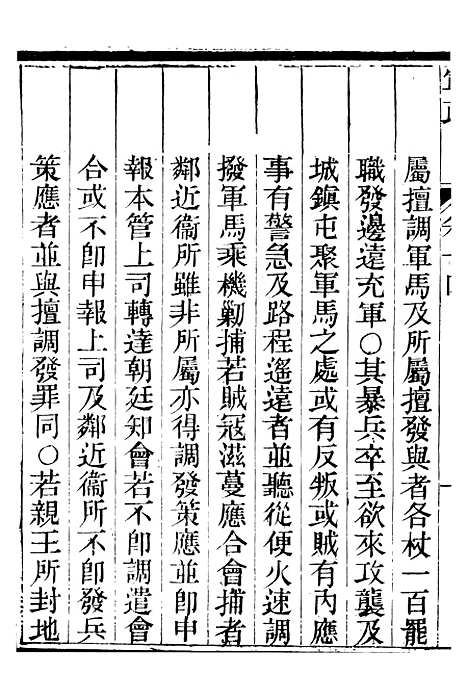 屬擅調軍馬及所屬擅發與者各杖一百罷
職發邊遠充軍○其暴兵卒至欲來攻襲及
城鎮屯聚軍馬之處或有反叛或賊有內應
事有警急及路程遙遠者並聽從便火速調
撥軍馬乘機勦捕若賊冦滋蔓應合會捕者
鄰近衞所雖非所屬亦得調發策應並卽申
報本管上司轉達朝廷知會若不卽調遣會
合或不卽申報上司及鄰近衞所不卽發兵
策應者並與擅調發罪同○若親王所封地